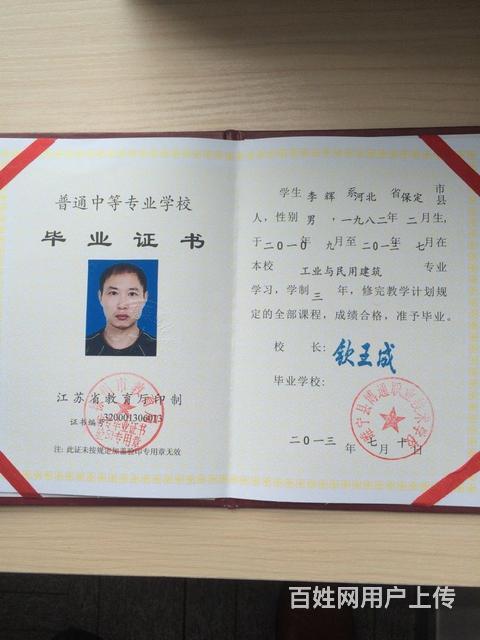 普通中等专业学校
毕业证书
江苏省教育厅印制
证书编号 320001306013
注: 此证未按规定加盖验印专用章无效
学生 李辉 系河北 省保定 市县
人，性别 男 ，一九八二年 二月生，
于二〇一〇年 九月至二〇一三年 七月在
本校 工业与民用建筑 专业
学习，学制三 年，修完教学计划规
定的全部课程，成绩合格，准予毕业。
校 长: 钦玉成
毕业学校:
睢宁县博通职业技术学校
二〇一三 年 七 月 十 日
百姓网用户上传